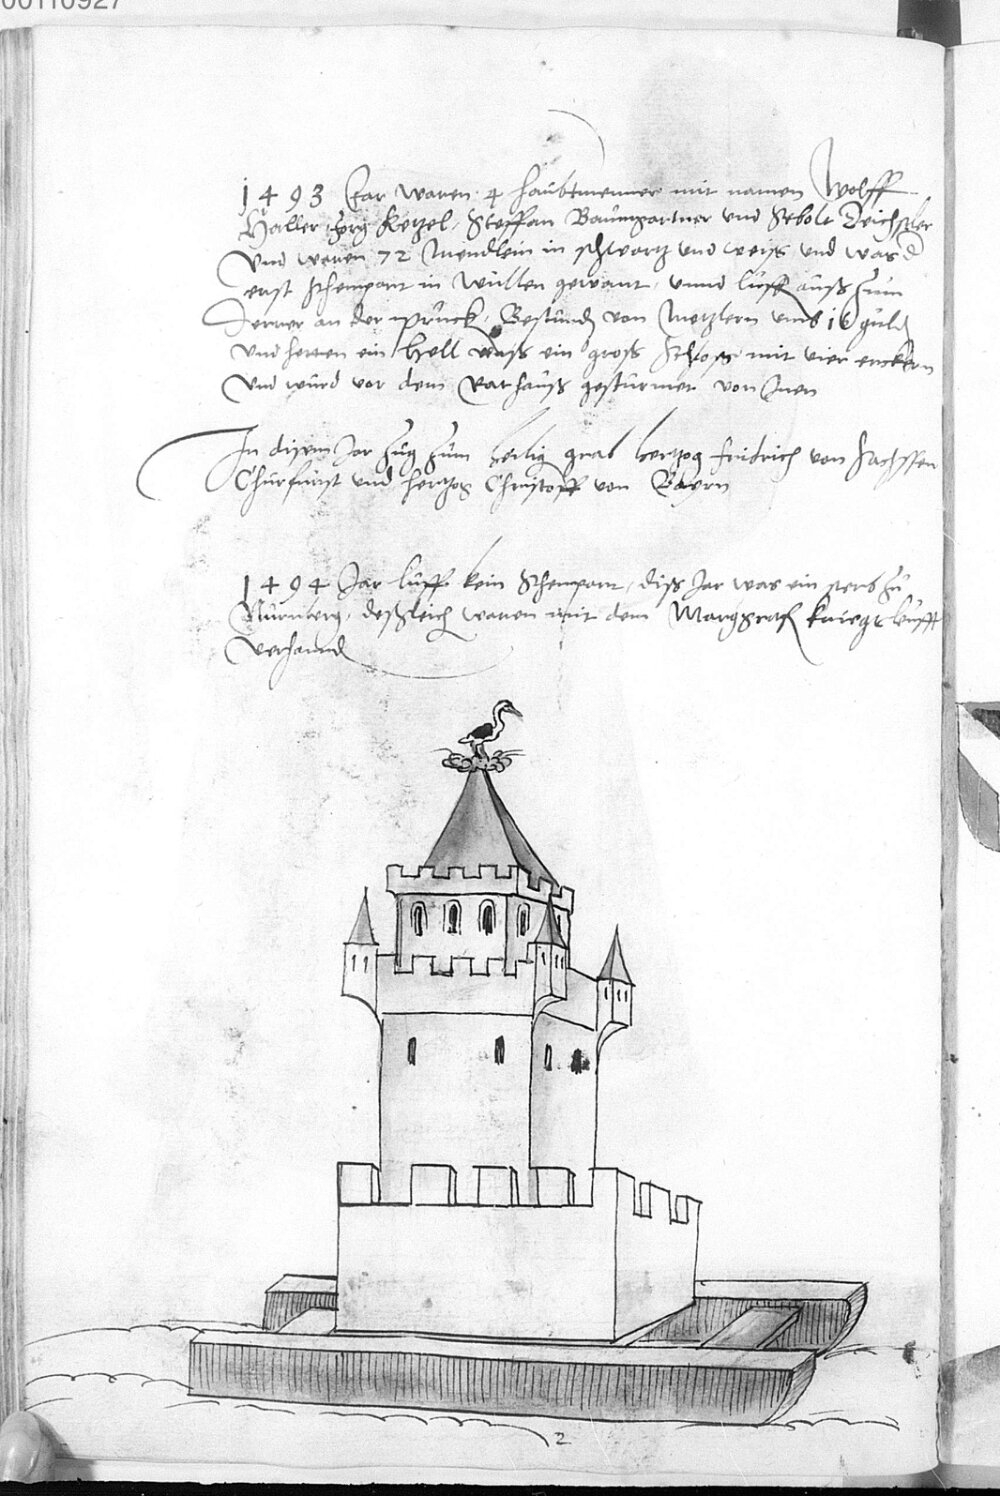 00110927
1493 Jar waren 4 haubtmenner mit namen Wolff
Haller Jorg Ketzel, Steffan Baumgartner und Sebolt Deichsler
Und waren 72 Mendlein in schwartz und weiss und was d
erst schempart in wullen gewant, unnd luff auß zum
Derrer an der pruck, Bestundts von Metzlern umb 16 guld
Und hetten ein Hell waß ein groß Schloß mit vier enckern
Und wurd vor dem Rathauß gesturmet von Inen
In disem Jar zug zum heilig grab hertzog fridrich von Sachssen
Churfurst und hertzog Christoff von Bayern
1494 Jar luff kein Schempart, diss Jar was ein sterb zu
Nurmberg, deßgleich waren mit dem Marggraf kriegs leufft
verhannd
2